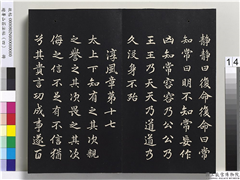 靜靜曰復命復命曰常
知常曰明不知常妄作
凶知常容容乃公公乃
王王乃天天乃道道乃
久沒身不殆
淳風章第十七
太上下知有之其次親
之譽之其次畏之其次
侮之信不足有不信猶
兮其貴言功成事遂百
14